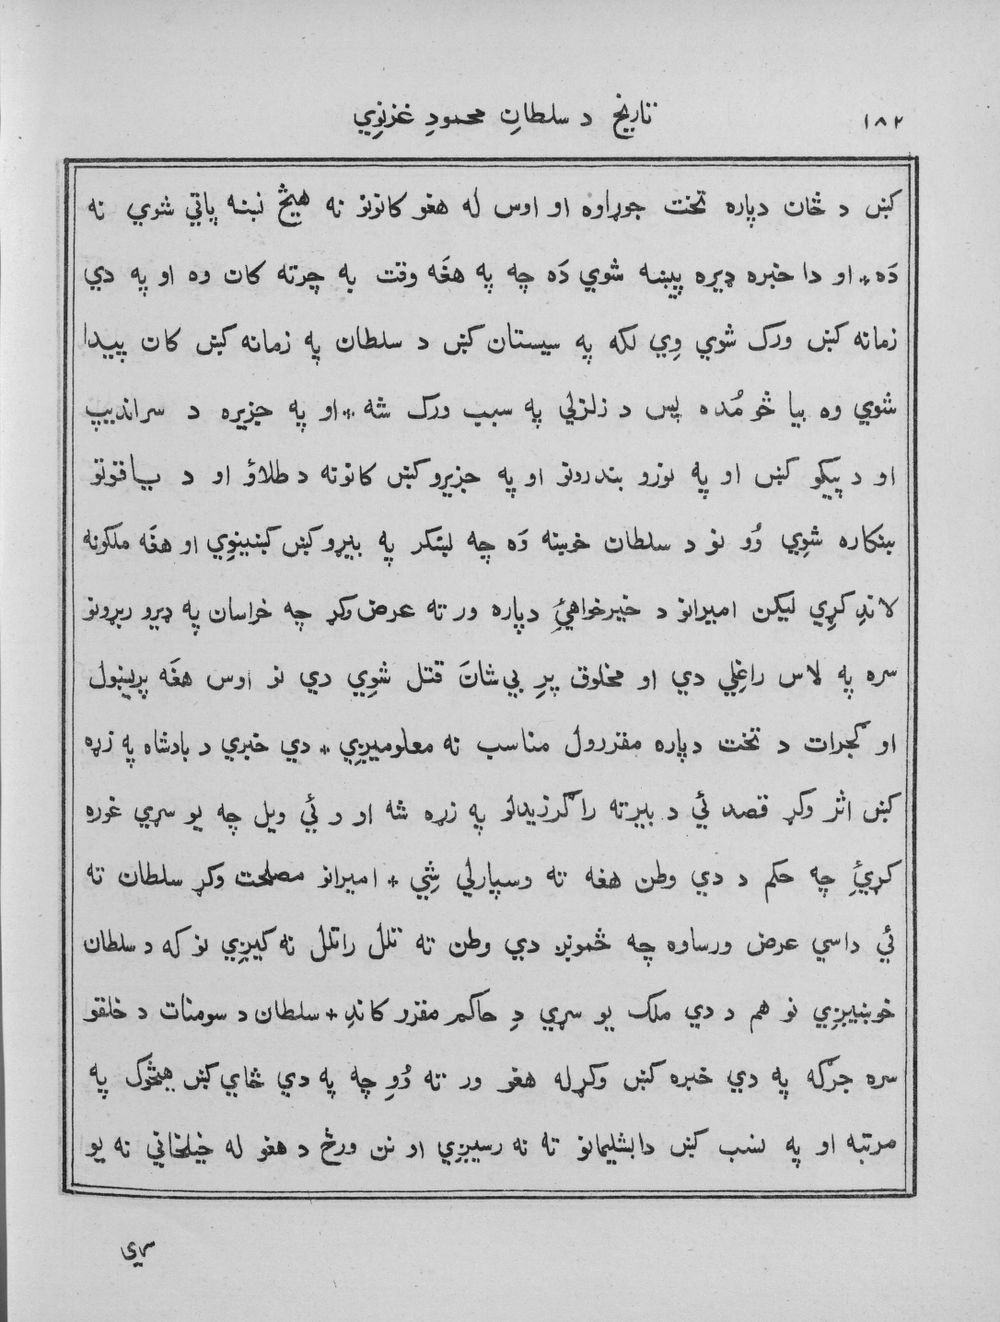 ١٨٢
تاریخ د سلطانِ محمودِ غزنوِي
کښ د ځان دپاره تخت جوړاوه او اوس له هغو کانونو نه هیڅ نښه پاتي شوي نه
دَه * او دا خبره ډیره پیښه شوي دَه چه په هغَه وقت به چرته کان وه او په دي
زمانه کښ ورک شوي وِي لکه په سیستان کښ د سلطان په زمانه کښ کان پیدا
شوي وه بیا څو مُده پس د زلزلي په سبب ورک شه * او په جزیره د سراندیپ
او د پیکو کښ او په نورو بندرونو او په جزیرو کښ کانونه د طلاؤ او د یاقوتو
ښکاره شوِي وُو نو د سلطان خوښه دَه چه لښکر په بیړو کښ کښینوِي او هغَه ملکونه
لاندِ کړِي لیکن امیرانو د خیرخواهیِٔ دپاره ور ته عرض وکړ چه خراسان په ډیرو ربړونو
سره په لاس راغِلي دي او مخلوق پرِ بي شانَ قتل شوِي دي نو اوس هغَه پریښول
او گجرات د تخت دپاره مقررول مناسب نه معلومیږِي * دي خبري د بادشاه په زړه
کښ اثر وکړ قصد ئي د بیرته راگرزیدلو په زړه شه او و ئي ویل چه یو سړي غوره
کړئِ چه حکم د دي وطن هغه ته وسپارلي شِي * امیرانو مصلحت وکړ سلطان ته
ئي داسي عرض ورساوه چه څمونږ دي وطن ته تلل راتلل نه کیږِي نو که د سلطان
خوښیږِي نو هم د دي ملک یو سړي دِ حاکم مقرر کاندِ * سلطان د سومنات د خلقو
سره جرگه په دي خبره کښ وکړله هغو ور ته وُوِ چه په دي ځاي کښ هیڅوک په
مرتبه او په نسب کښ دابشلیمانو ته نه رسیږِي او نن ورځ د هغو له خیلخاني نه یو
سړي